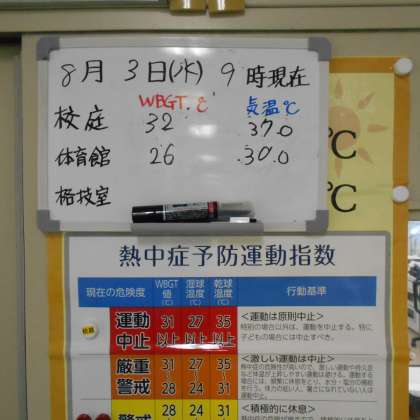 8月 3日(水) 9時現在
WBGT ℃ 気温℃
校庭 32 37.0
体育館 26 30.0
格技室
℃
℃
熱中症予防運動指数
現在の危険度 WBGT値(℃) 湿球温度(℃) 乾球温度(℃) 行動基準
運動中止 31以上 27以上 35以上 <運動は原則中止>
特別の場合以外は、運動を中止する。特に
子どもの場合には中止すべき。
厳重警戒 31 27 35 <激しい運動は中止>
28 24 31
警戒 28 24 31 <積極的に休息>